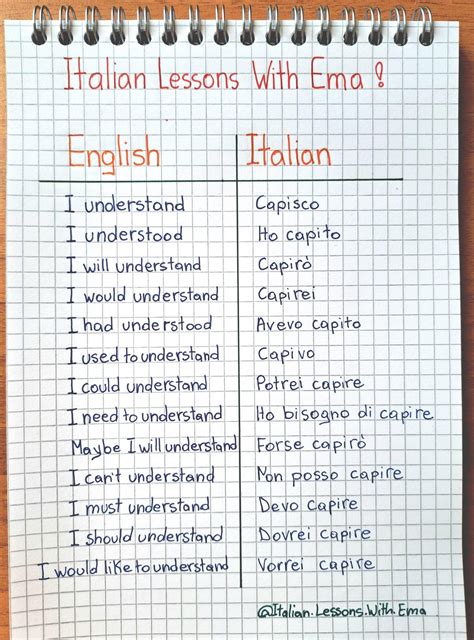 Italian Lessons With Ema!
English Italian
I understand Capisco
I understood Ho capito
I will understand Capirò
I would understand Capirei
I had understood Avevo capito
I used to understand Capivo
I could understand Potrei capire
I need to understand Ho bisogno di capire
Maybe I will understand Forse capirò
I can't understand Non posso capire
I must understand Devo capire
I should understand Dovrei capire
I would like to understand Vorrei capire
@Italian.Lessons.With.Ema